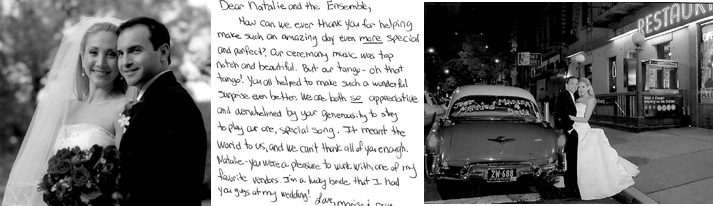 Dear Natalie and the Ensemble,
How can we ever thank you for helping
make such an amazing day even more special
and perfect? Our ceremony music was top
notch and beautiful. But our tango - oh that
tango! You all helped to make such a wonderful
surprise even better. We are both so appreciative
and overwhelmed by your generousity to stay
to play our one, special song. It meant the
world to us, and we can't thank all of you enough.
Natalie - you were a pleasure to work with, one of my
favorite vendors. I'm a lucky bride that I had
you guys at my wedding! Love,
RESTAURA
2W-688